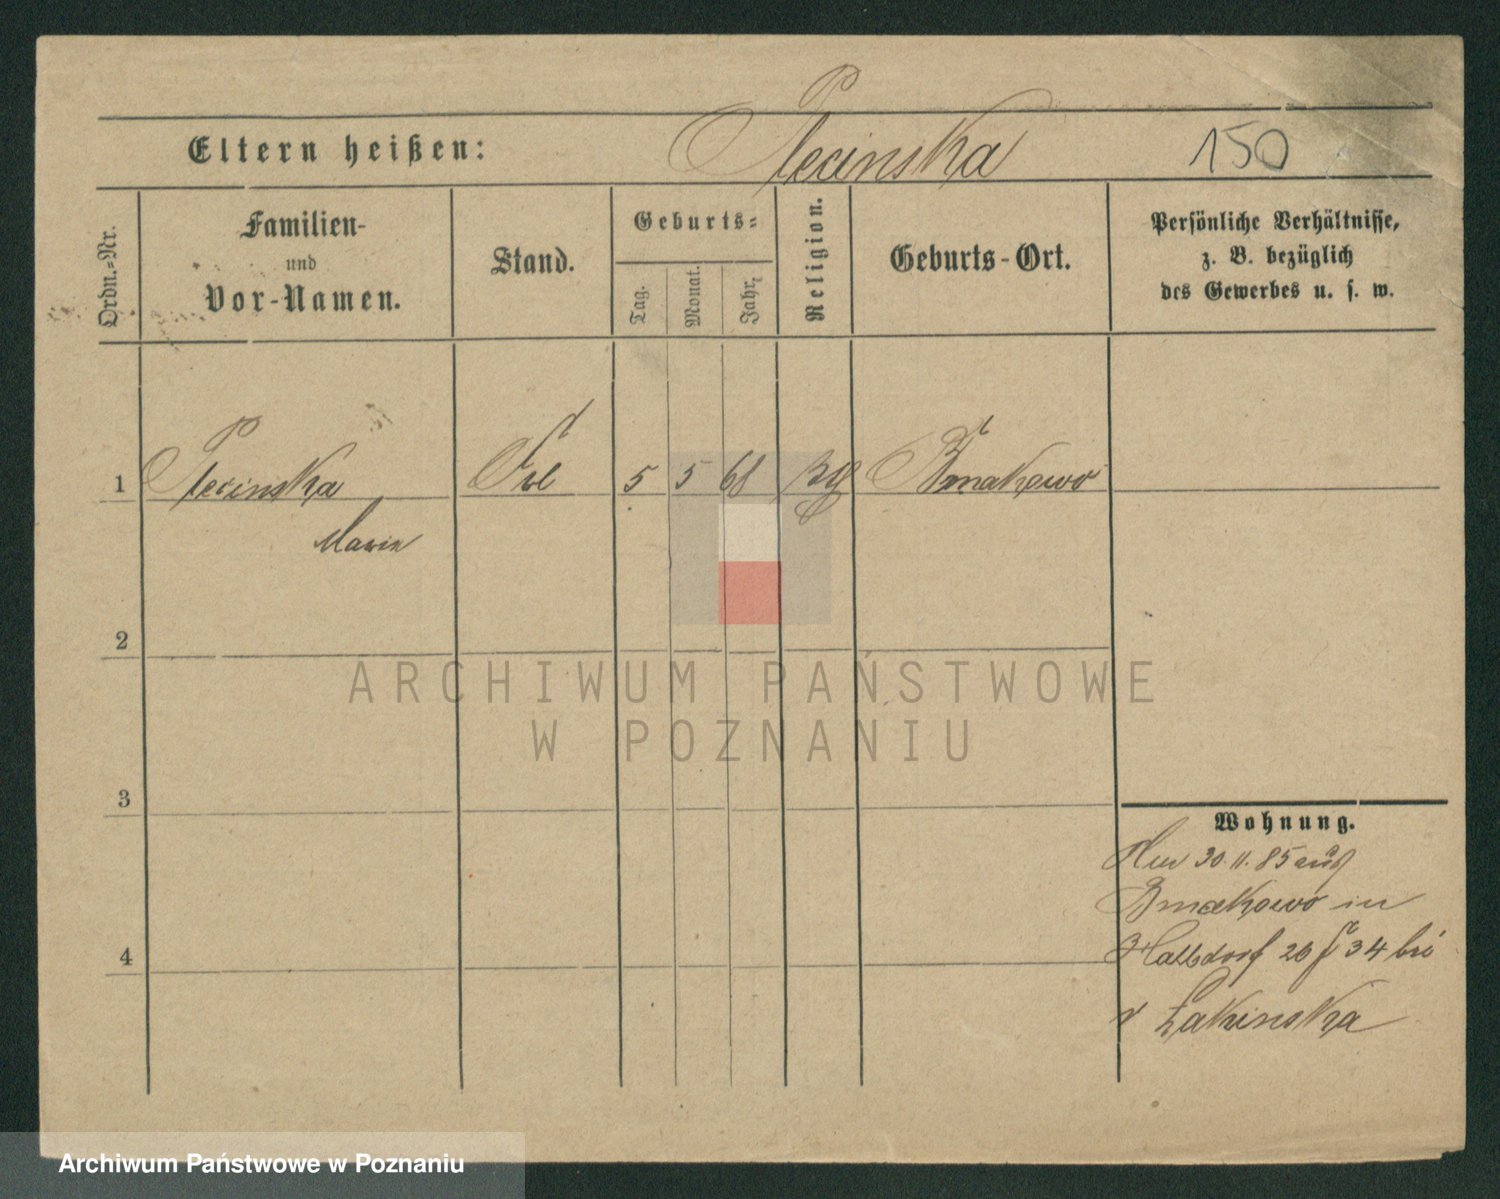 Eltern heißen: Plecinska 150
Ordn.-Nr.
Familien-
und
Vor-Namen.
Stand.
Geburts-
Tag.
Monat.
Jahr.
Religion.
Geburts-Ort.
Persönliche Verhältnisse,
z. B. bezüglich
des Gewerbes u. s. w.
1 Plecinska 5 5 68 Bnakowo
Marie
2
3
4
Wohnung.
30.11.85 aus
Bnakowo in
Halbdorf 26 34 bei
Lakinska
ARCHIWUM PAŃSTWOWE
W POZNANIU
Archiwum Państwowe w Poznaniu